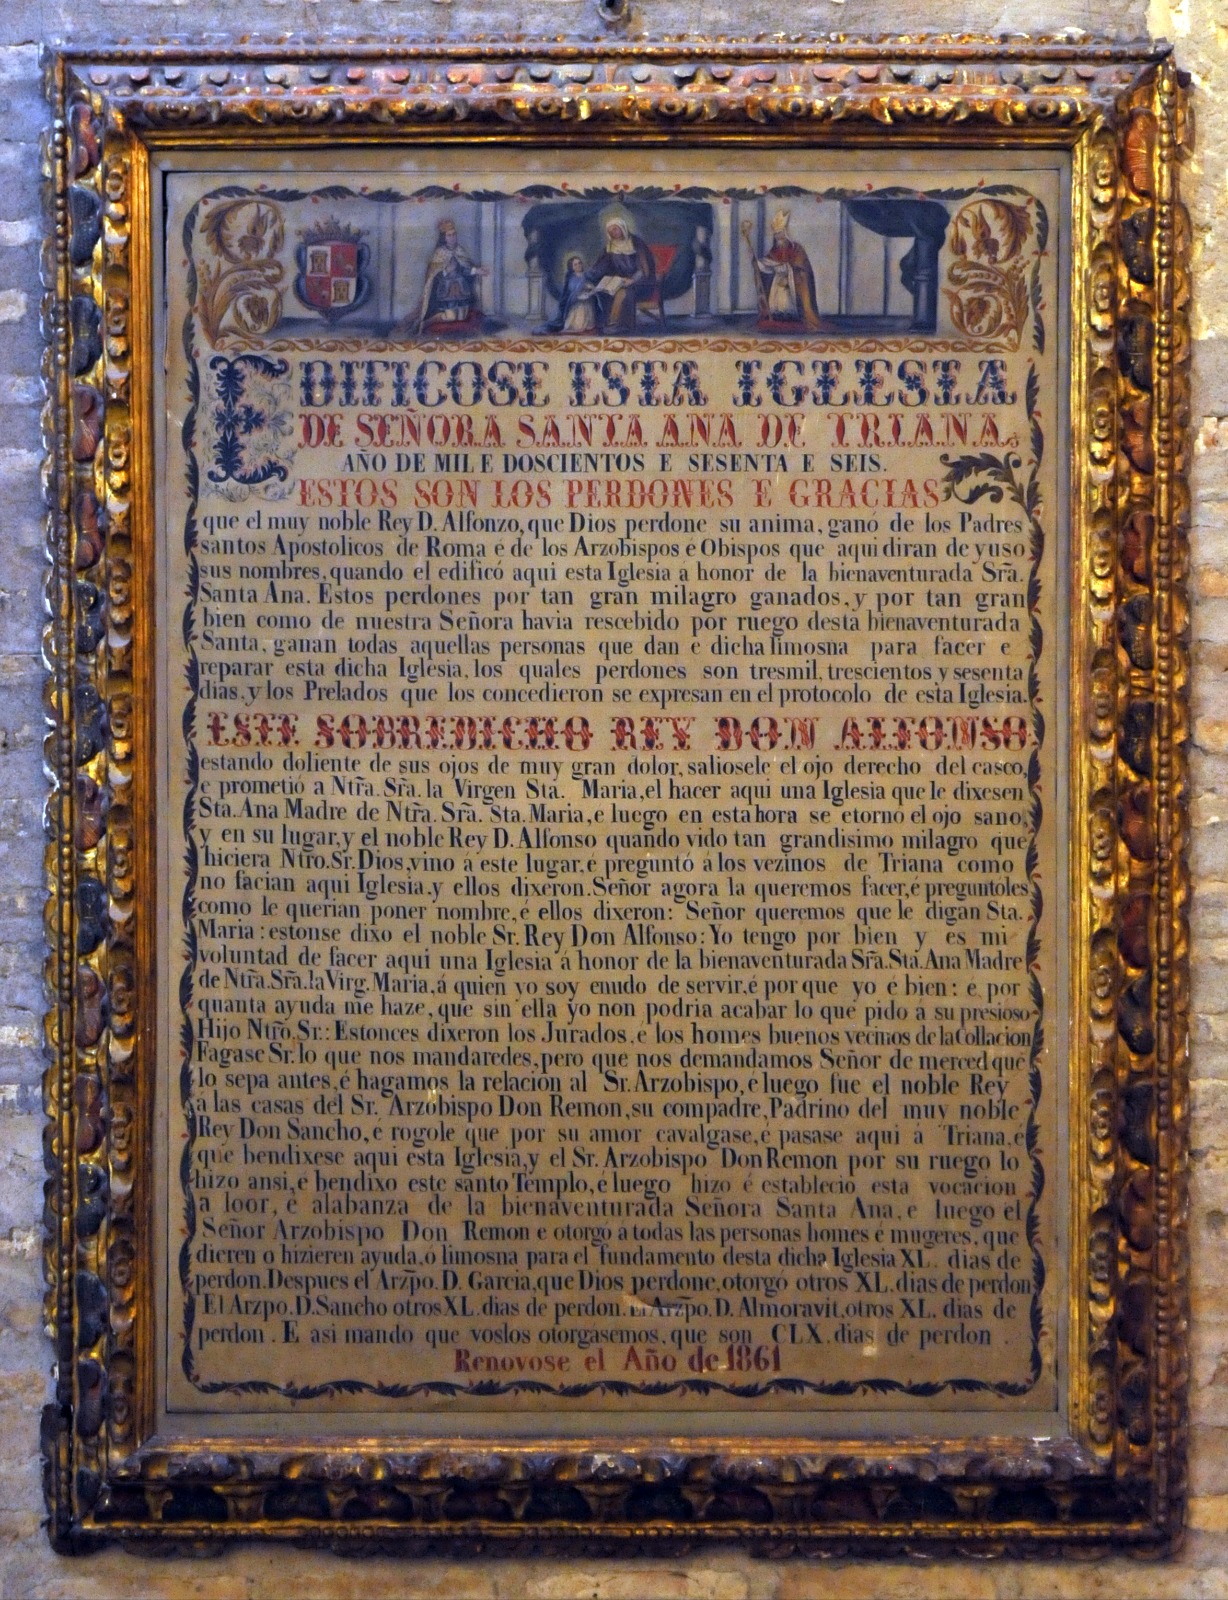 EDIFICOSE ESTA IGLESIA
DE SEÑORA SANTA ANA DE TRIANA,
AÑO DE MIL E DOSCIENTOS E SESENTA E SEIS.
ESTOS SON LOS PERDONES E GRACIAS
que el muy noble Rey D. Alfonzo, que Dios perdone su anima, ganó de los Padres
santos Apostolicos de Roma é de los Arzobispos é Obispos que aqui diran de yuso
sus nombres, quando el edificó aqui esta Iglesia á honor de la bienaventurada Sra.
Santa Ana. Estos perdones por tan gran milagro ganados, y por tan gran
bien como de nuestra Señora havia rescebido por ruego desta bienaventurada
Santa, ganan todas aquellas personas que dan é dicha limosna para facer e
reparar esta dicha Iglesia, los quales perdones son tresmil, trescientos y sesenta
dias, y los Prelados que los concedieron se expresan en el protocolo de esta Iglesia.
ESTE SOBREDICHO REY DON ALFONSO
estando doliente de sus ojos de muy gran dolor, saliosele el ojo derecho del casco,
e prometió a Ntra. Sra. la Virgen Sta. Maria, el hacer aqui una Iglesia que le dixesen
Sta. Ana Madre de Ntra. Sra. Sta. Maria, e luego en esta hora se etornó el ojo sano,
y en su lugar, y el noble Rey D. Alfonso quando vido tan grandisimo milagro que
hiciera Ntro. Sr. Dios, vino á este lugar, é preguntó á los vezinos de Triana como
no facian aqui Iglesia, y ellos dixeron. Señor agora la queremos facer, é preguntoles
como le querian poner nombre, é ellos dixeron: Señor queremos que le digan Sta.
Maria: estonse dixo el noble Sr. Rey Don Alfonso: Yo tengo por bien y es mi
voluntad de facer aqui una Iglesia á honor de la bienaventurada Sra. Sta. Ana Madre
de Ntra. Sra. la Virg. Maria, á quien yo soy enudo de servir, é por que yo é bien: é por
quanta ayuda me haze, que sin ella yo non podria acabar lo que pido á su presioso
Hijo Ntro. Sr.: Estonces dixeron los Jurados, é los homes buenos vecinos de la Collacion
Fagase Sr. lo que nos mandaredes, pero que nos demandamos Señor de merced que
lo sepa antes, é hagamos la relación al Sr. Arzobispo, e luego fue el noble Rey
á las casas del Sr. Arzobispo Don Remon, su compadre, Padrino del muy noble
Rey Don Sancho, é rogole que por su amor cavalgase, é pasase aqui á Triana, é
que bendixese aqui esta Iglesia, y el Sr. Arzobispo Don Remon por su ruego lo
hizo ansi, é bendixo este santo Templo, é luego hizo é estableció esta vocacion
a loor, é alabanza de la bienaventurada Señora Santa Ana, e luego el
Señor Arzobispo Don Remon e otorgó á todas las personas homes é mugeres, que
dieren o hizieren ayuda, ó limosna para el fundamento desta dicha Iglesia XL. dias de
perdon. Despues el Arzpo. D. Garcia, que Dios perdone, otorgó otros XL. dias de perdon
El Arzpo. D. Sancho otros XL. dias de perdon. El Arzpo. D. Almoravit, otros XL. dias de
perdon. E asi mando que voslos otorgasemos, que son CLX. dias de perdon.
Renovose el Año de 1861